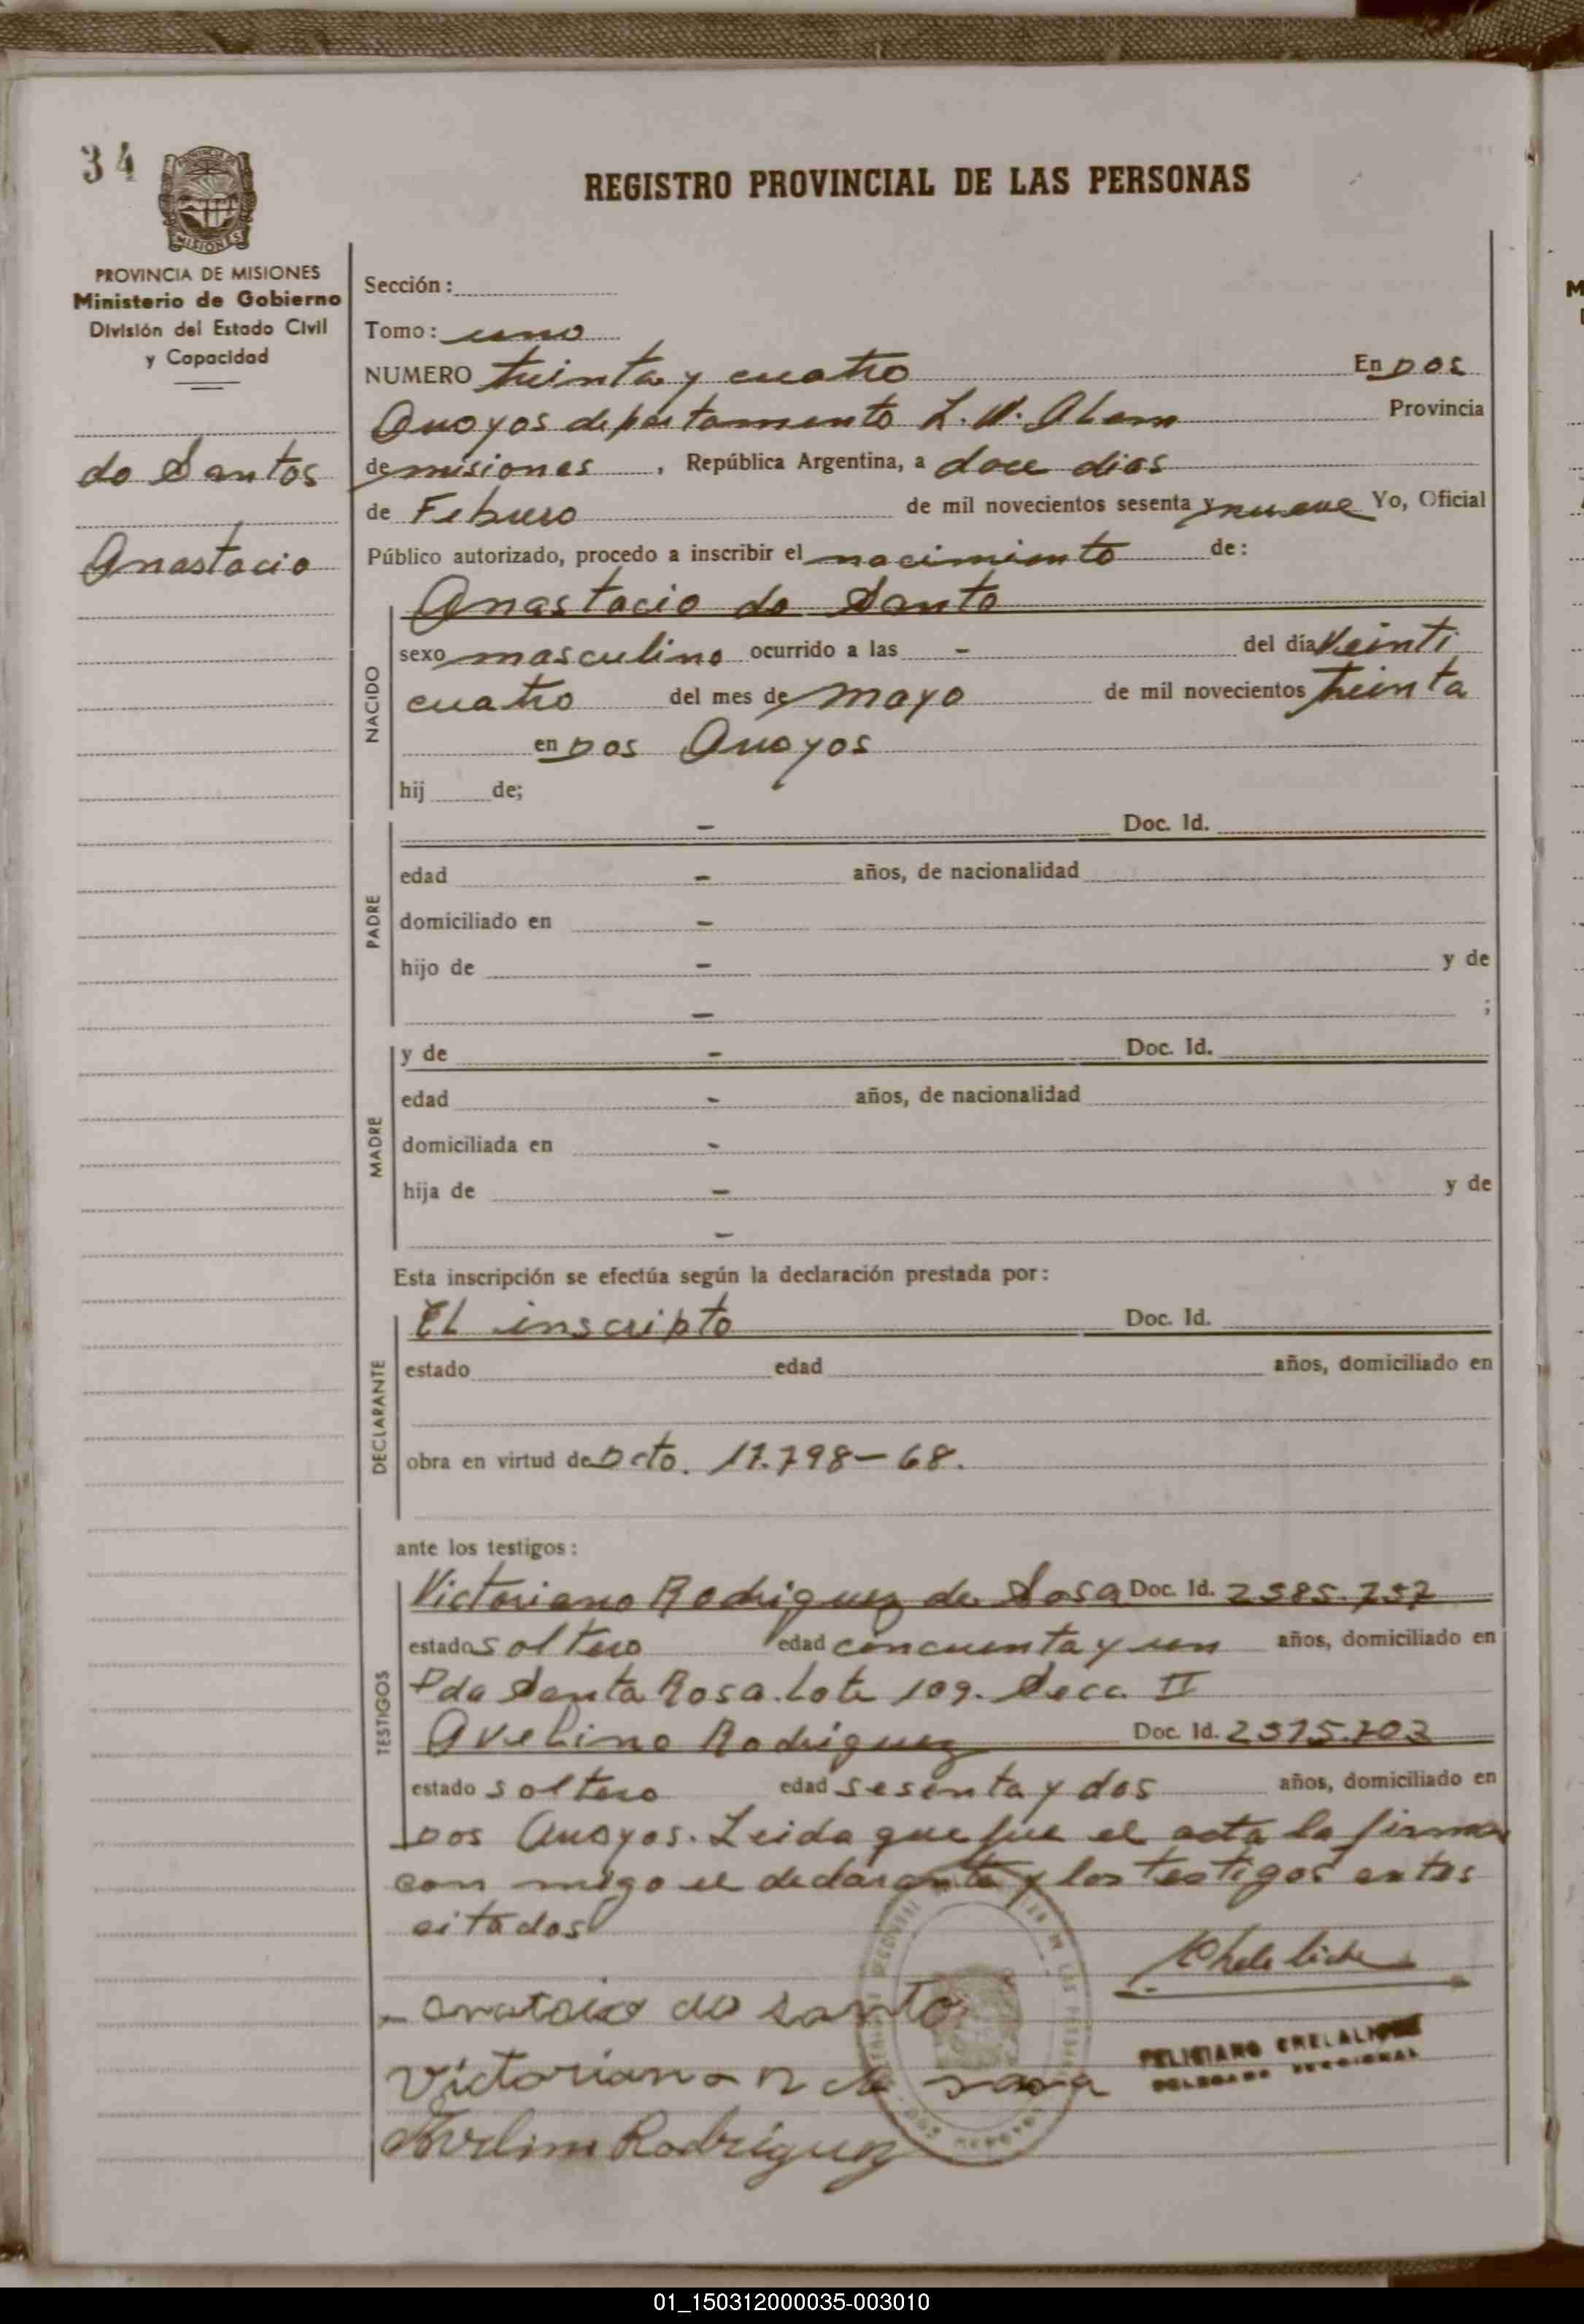 34
PROVINCIA DE MISIONES
MISIONES
REGISTRO PROVINCIAL DE LAS PERSONAS
PROVINCIA DE MISIONES
Ministerio de Gobierno
División del Estado Civil
y Capacidad
do Santos
Anastacio
Sección:
Tomo: uno
NUMERO treinta y cuatro En Dos
Arroyos departamento L. N. Alem Provincia
de misiones, República Argentina, a doce dias
de Febrero de mil novecientos sesenta y nueve Yo, Oficial
Público autorizado, procedo a inscribir el nacimiento de:
NACIDO
Anastacio do Santo
sexo masculino ocurrido a las - del día Veinti
cuatro del mes de mayo de mil novecientos treinta
en Dos Arroyos
hij de;
PADRE
- Doc. Id.
edad - años, de nacionalidad
domiciliado en -
hijo de - y de
- ;
MADRE
y de - Doc. Id.
edad - años, de nacionalidad
domiciliada en -
hija de - y de
-
Esta inscripción se efectúa según la declaración prestada por:
DECLARANTE
El inscripto Doc. Id.
estado edad años, domiciliado en
obra en virtud de Dcto. 17.798-68.
ante los testigos:
TESTIGOS
Victoriano Rodriguez de Sosa Doc. Id. 2585.757
estado soltero edad cincuenta y un años, domiciliado en
Pda Santa Rosa. Lote 109. Secc. II
Avelino Rodriguez Doc. Id. 2575.703
estado soltero edad sesenta y dos años, domiciliado en
Dos Arroyos. Leida que fue el acta la firma
con migo el declarante y los testigos antes
citados
anatacio do santo
Victoriano R de sosa
Avelino Rodriguez
FELICIANO CHELALICHE
DELEGADO SECCIONAL
01_150312000035-003010